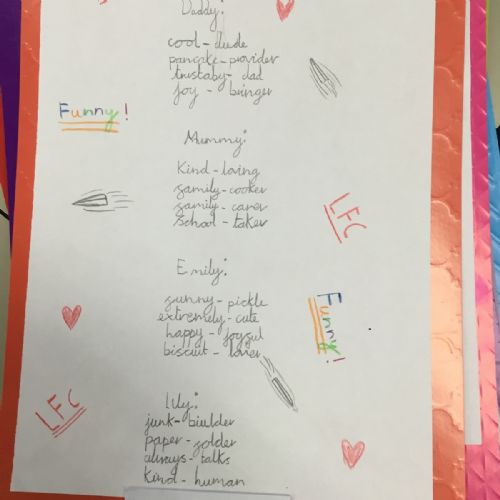 Daddy:
cool - dude
pancake - provider
trustaby - dad
joy - bringer
Funny!
Mummy:
Kind - loving
family - cooker
family - carer
School - taker
LFC
Emily:
funny - pickle
extremely - cute
happy - joyful
biscuit - lover
Funny!
LFC
Lily:
junk - biulder
paper - folder
always - talks
kind - human